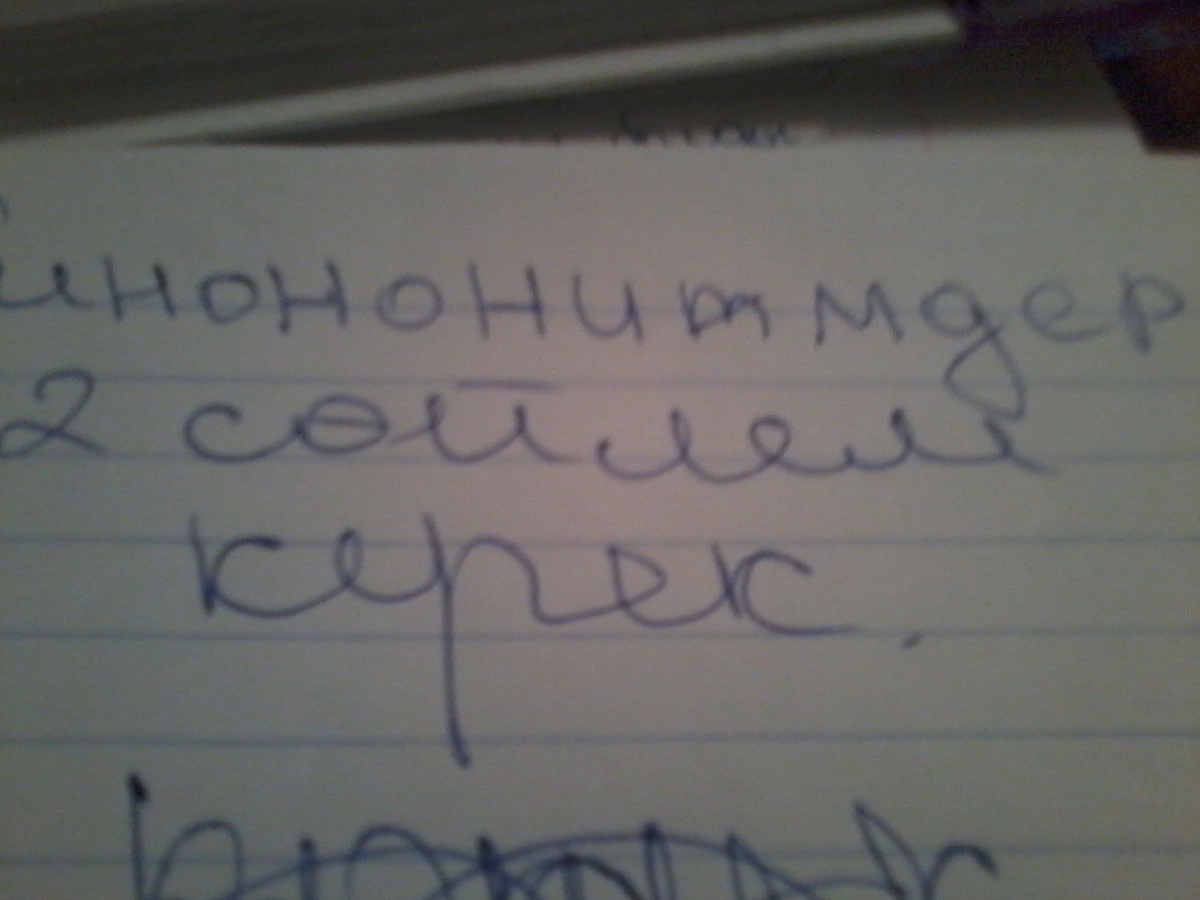 инононитмдер
2 сөйлем
керек.